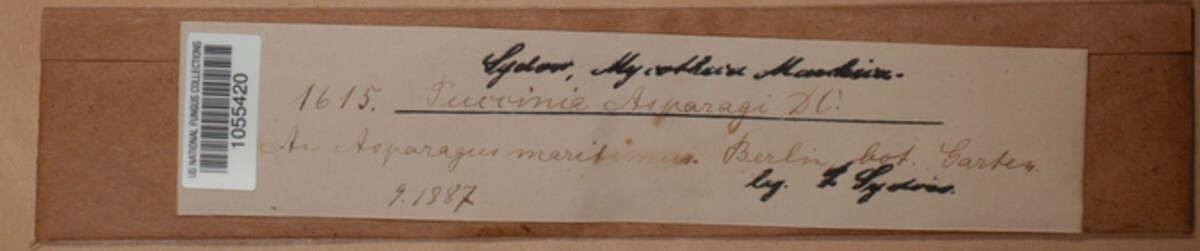 US NATIONAL FUNGUS COLLECTIONS
1055420
Sydow, Mycotheca Marchica.
1615. Puccinia Asparagi DC.
An Asparagus maritimus. Berlin, bot. Garten.
9.1887
leg. P Sydow.